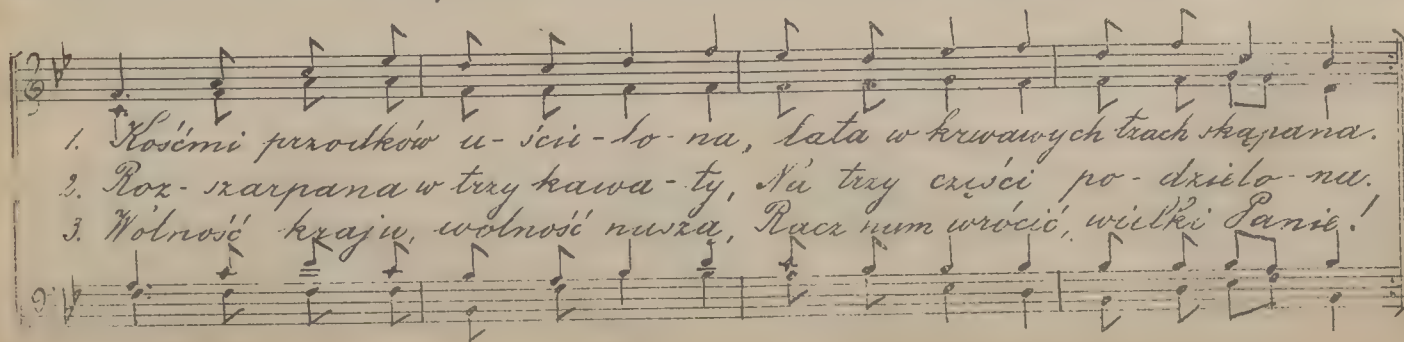 1. Kośćmi przodków u-ście-lo-na, łała w krwawych łzach skąpana.
2. Roz-szarpana w trzy kawa-ły, Na trzy części po-dzielo-na.
3. Wolność kraju, wolność nasza, Racz nam wrócić, wielki Panie!